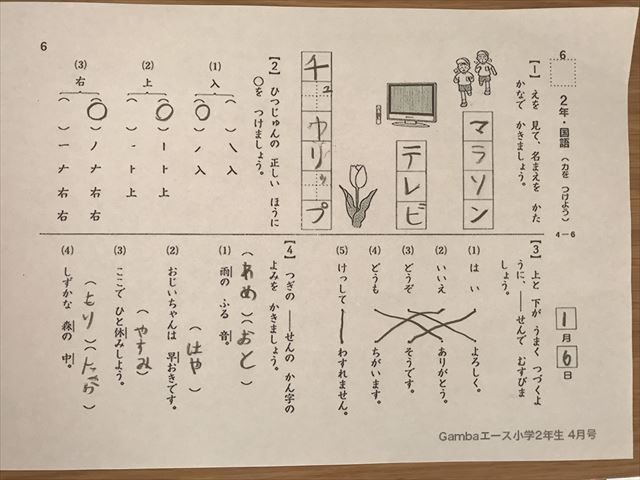 6
2年・国語 (力を つけよう)
4－6
【1】 えを 見て、名まえを かた
かなで かきましょう。
マラソン
テレビ
チュウリップ
【2】 ひつじゅんの 正しい ほうに
○を つけましょう。
(1) 入
( ) ㇏ 入
(○) ノ 入
(2) 上
(○) 丨 ト 上
( ) 一 ト 上
(3) 右
(○) ノ ナ 右 右
( ) 一 ナ 右 右
6
1月6日
【3】 上と 下が うまく つづくよ
うに、──せんで むすびま
しょう。
(1) はい
(2) いいえ
(3) どうぞ
(4) どうも
(5) けっして
よろしく。
ありがとう。
そうです。
ちがいます。
わすれません。
【4】 つぎの ──せんの かん字の
よみを かきましょう。
(1) 雨の ふる 音。
(あめ)(おと)
(2) おじいちゃんは 早おきです。
(はや)
(3) ここで ひと休みしよう。
(やすみ)
(4) しずかな 森の 中。
(もり)(なか)
Gambaエース小学2年生 4月号